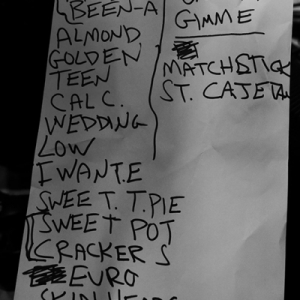 BEEN-A
ALMOND
GOLDEN
TEEN
CALC.
WEDDING
LOW
I WANT.E
SWEET. T.PIE
SWEET POT
CRACKERS
EURO
GIMME
MATCHSTICK
ST. CAJETAN